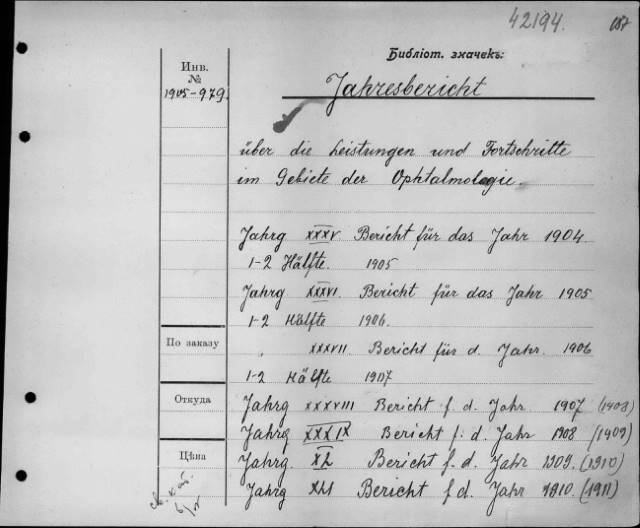 42194.
Библіот. значекъ:
Инв.
№
1905-979.
Jahresbericht
über die Leistungen und Fortschritte
im Gebiete der Ophtalmologie.
Jahrg XXXV Bericht für das Jahr 1904
1-2 Hälfte. 1905
Jahrg XXXVI. Bericht für das Jahr 1905
1-2 Hälfte 1906.
По заказу
" XXXVII Bericht für d. Jahr. 1906
1-2 Hälfte 1907
Откуда
Jahrg XXXVIII Bericht f. d. Jahr 1907 (1908)
Jahrg XXXIX Bericht f. d. Jahr 1908 (1909)
Цѣна
Jahrg. XL Bericht f. d. Jahr 1909. (1910)
Jahrg XLI Bericht f. d. Jahr 1910. (1911)